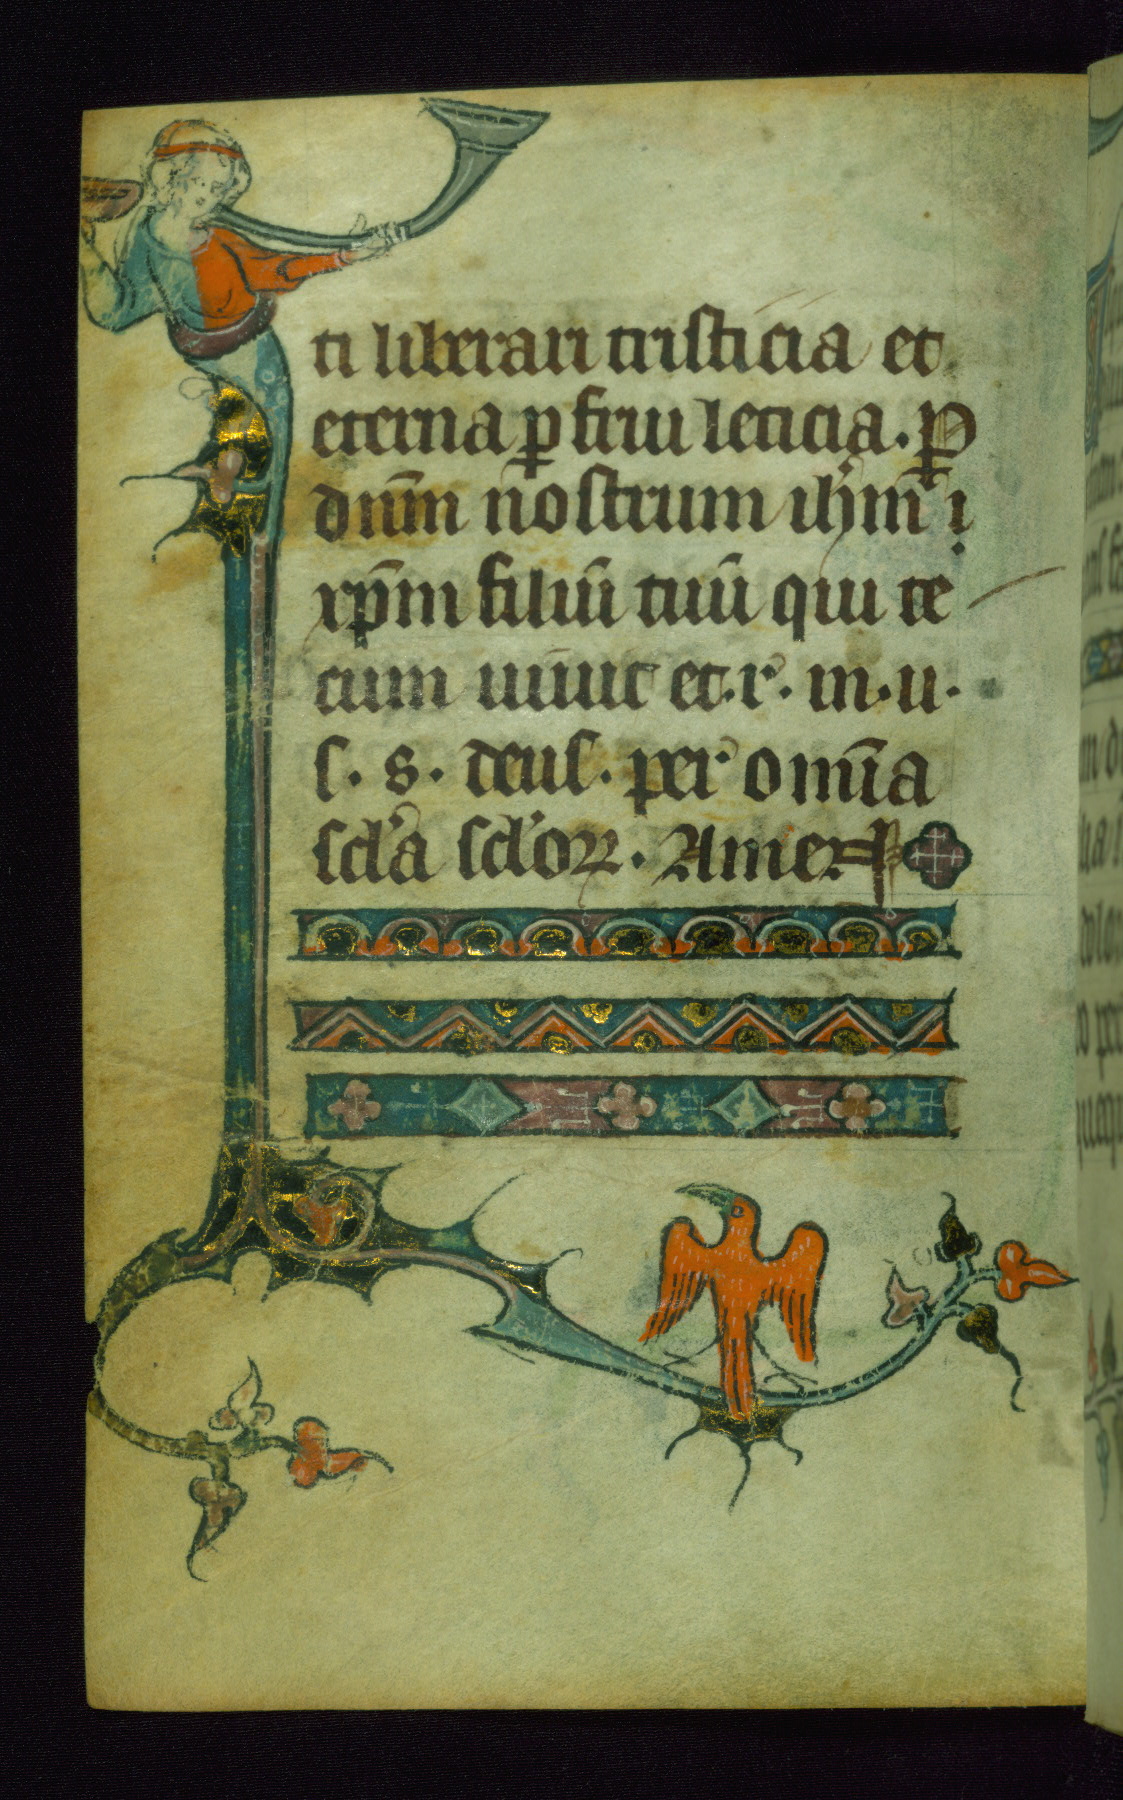 ti liberari tristicia et
eterna ꝑfrui leticia. ꝑ
dn̄m nostrum ih̄m i
xp̄m filiū tuū qui te
cum uiuit et. r̉. in. u.
s. s. deus. per omīa
scl̉a scl̉oꝝ. Amen